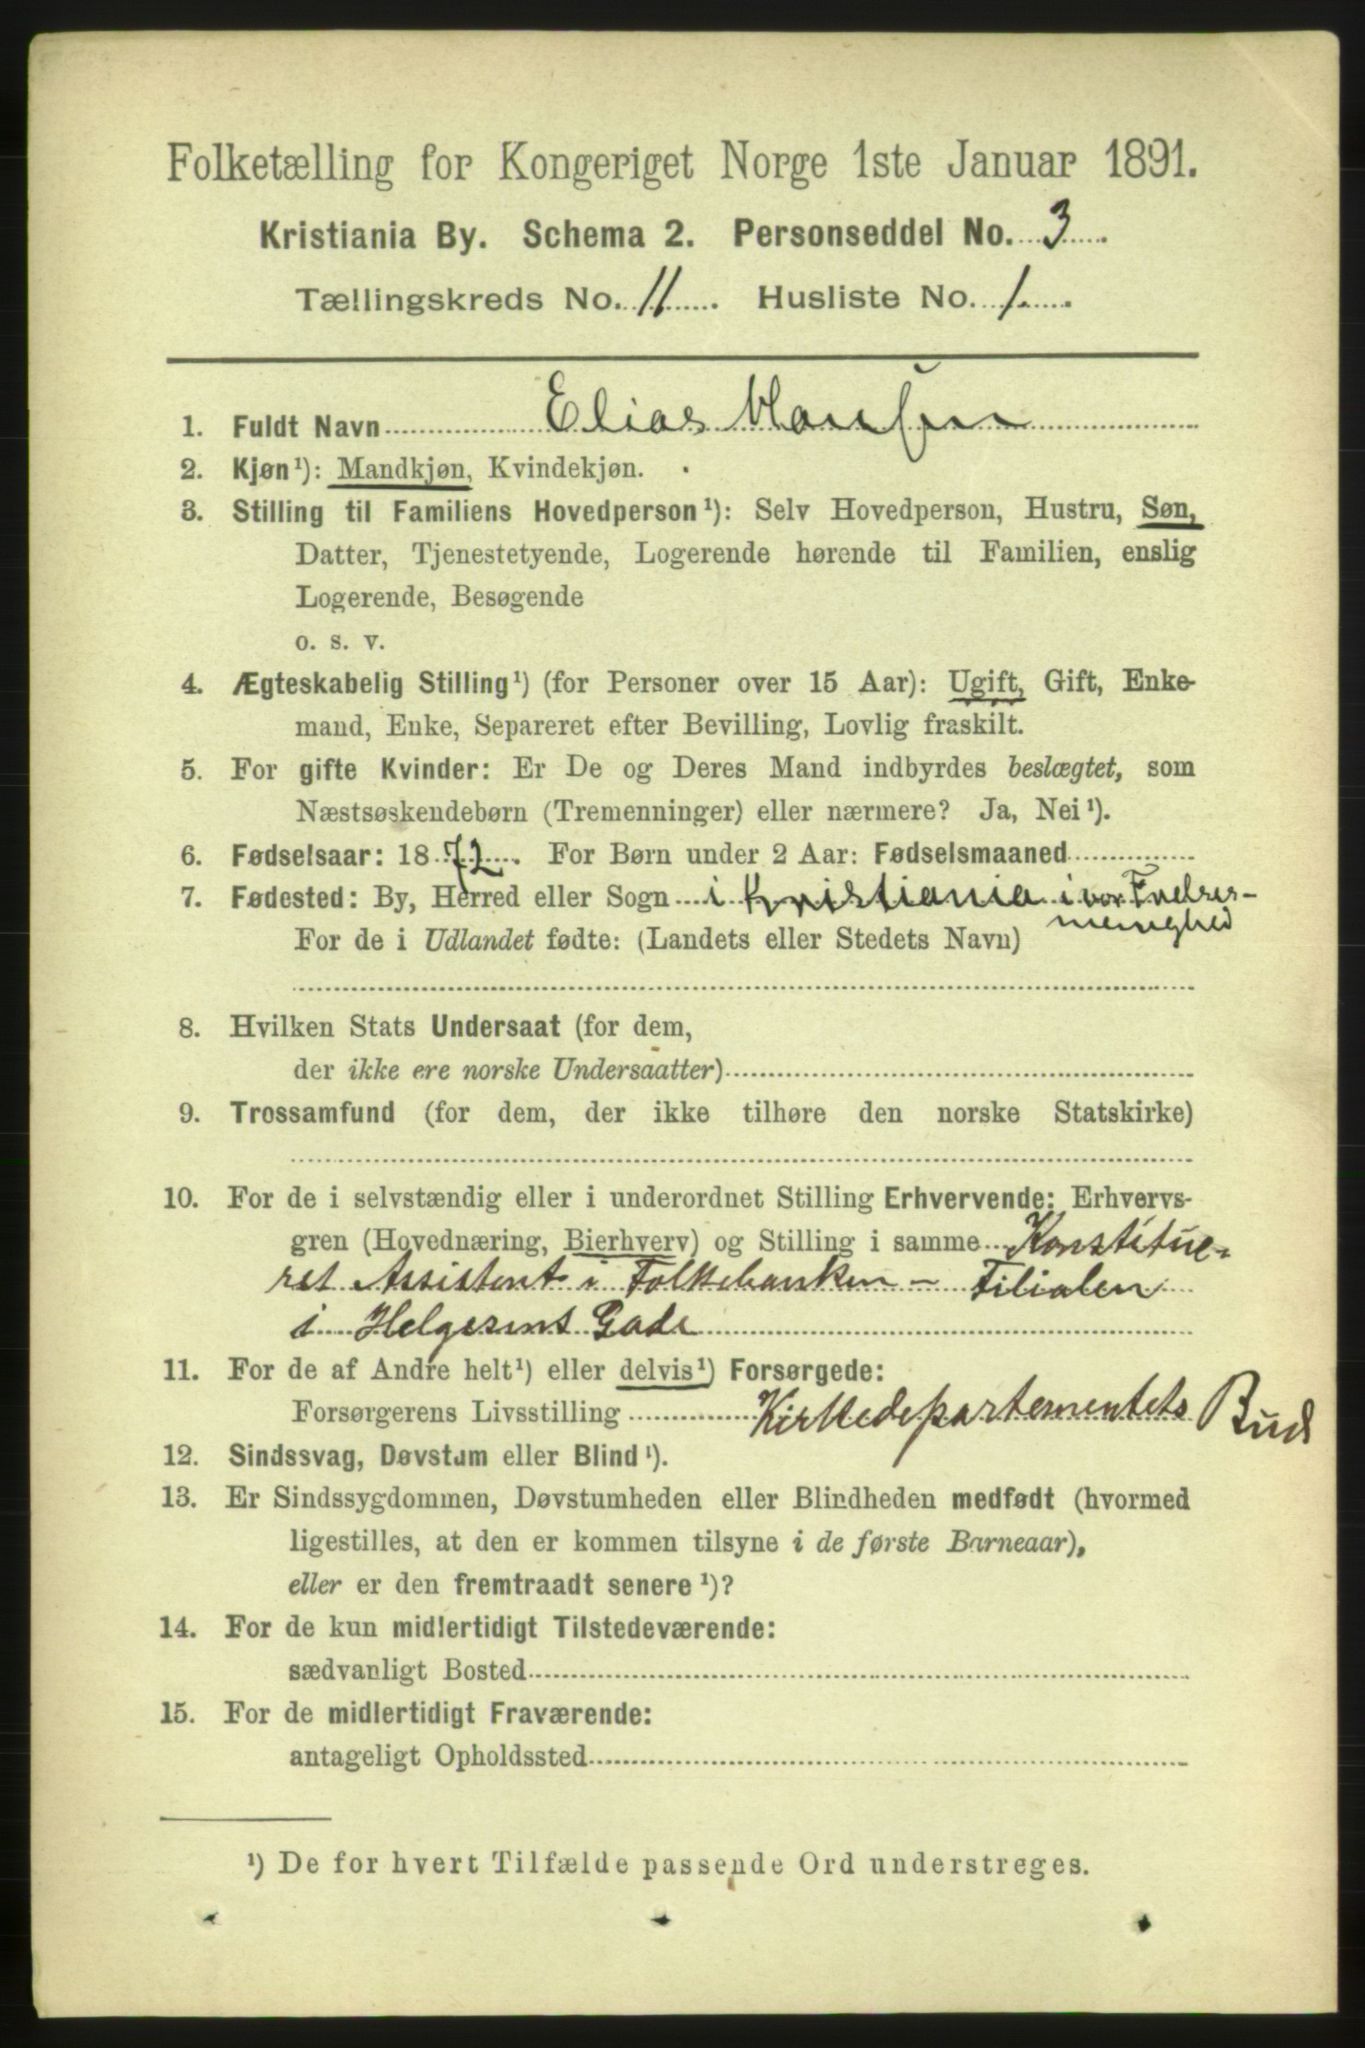 Folketælling for Kongeriget Norge 1ste Januar 1891.
Kristiania By. Schema 2. Personseddel No. 3
Tællingskreds No. 11. Husliste No. 1.
1. Fuldt Navn Elias Hansen
2. Kjøn¹): Mandkjøn, Kvindekjøn.
3. Stilling til Familiens Hovedperson¹): Selv Hovedperson, Hustru, Søn,
Datter, Tjenestetyende, Logerende hørende til Familien, enslig
Logerende, Besøgende
o. s. v.
4. Ægteskabelig Stilling¹) (for Personer over 15 Aar): Ugift, Gift, Enke-
mand, Enke, Separeret efter Bevilling, Lovlig fraskilt.
5. For gifte Kvinder: Er De og Deres Mand indbyrdes beslægtet, som
Næstsøskendebørn (Tremenninger) eller nærmere? Ja, Nei¹).
6. Fødselsaar: 1872. For Børn under 2 Aar: Fødselsmaaned
7. Fødested: By, Herred eller Sogn i Kristiania i vor Frelsers-
menighed
For de i Udlandet fødte: (Landets eller Stedets Navn)
8. Hvilken Stats Undersaat (for dem,
der ikke ere norske Undersaatter)
9. Trossamfund (for dem, der ikke tilhøre den norske Statskirke)
10. For de i selvstændig eller i underordnet Stilling Erhvervende: Erhvervs-
gren (Hovednæring, Bierhverv) og Stilling i samme Konstitue-
ret Assistent i Folkebanken - Filialen
i Helgesens Gade
11. For de af Andre helt¹) eller delvis¹) Forsørgede:
Forsørgerens Livsstilling Kirkedepartementets Bud
12. Sindssvag, Døvstum eller Blind¹).
13. Er Sindssygdommen, Døvstumheden eller Blindheden medfødt (hvormed
ligestilles, at den er kommen tilsyne i de første Barneaar),
eller er den fremtraadt senere¹)?
14. For de kun midlertidigt Tilstedeværende:
sædvanligt Bosted
15. For de midlertidigt Fraværende:
antageligt Opholdssted
¹) De for hvert Tilfælde passende Ord understreges.